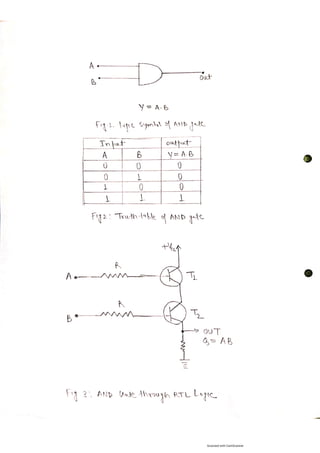 A
B
Out
Y = A.B
Fig 1. Logic Symbol of AND gate
Input output
A B Y = A B
0 0 0
0 1 0
1 0 0
1 1 1
Fig 2 : Truth table of AND gate
R
A T1
R
B T2
OUT
= AB
Fig 3 : AND Gate through RTL Logic
Scanned with CamScanner